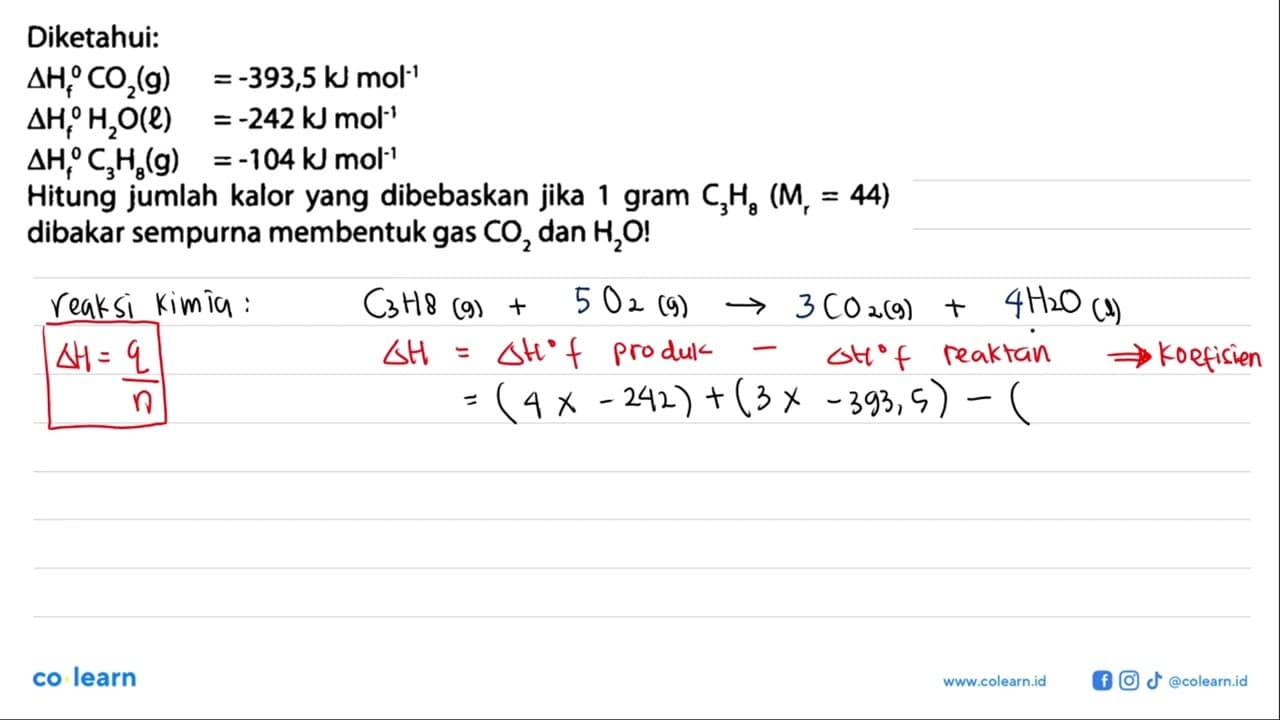 Diketahui:
ΔH_f^0 CO₂(g) = -393,5 kJ mol⁻¹
ΔH_f^0 H₂O(ℓ) = -242 kJ mol⁻¹
ΔH_f^0 C₃H₈(g) = -104 kJ mol⁻¹
Hitung jumlah kalor yang dibebaskan jika 1 gram C₃H₈ (M_r = 44)
dibakar sempurna membentuk gas CO₂ dan H₂O!
reaksi kimia : C₃H8 (g) + 5 O₂ (g) → 3 CO₂(g) + 4H₂O (l)
ΔH = q/n
ΔH = ΔH°f produk - ΔH°f reaktan ⇒ koefisien
= (4 x -242) + (3 x -393,5) - (
co learn
www.colearn.id
@colearn.id